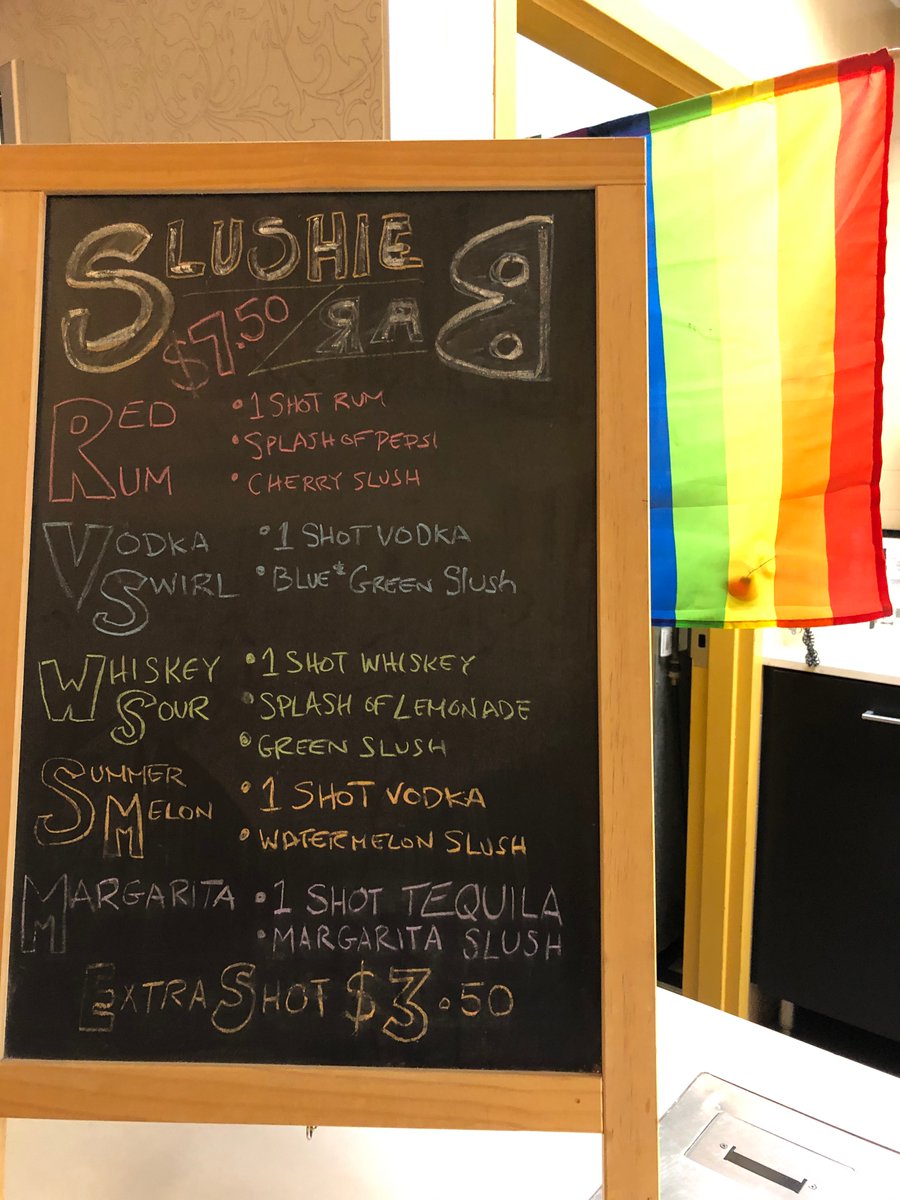 SLUSHIE
$7.50 BAR
RED RUM
• 1 SHOT RUM
• SPLASH OF PEPSI
• CHERRY SLUSH
VODKA SWIRL
• 1 SHOT VODKA
• BLUE & GREEN SLUSH
WHISKEY SOUR
• 1 SHOT WHISKEY
• SPLASH OF LEMONADE
• GREEN SLUSH
SUMMER MELON
• 1 SHOT VODKA
• WATERMELON SLUSH
MARGARITA
• 1 SHOT TEQUILA
• MARGARITA SLUSH
EXTRA SHOT $3.50